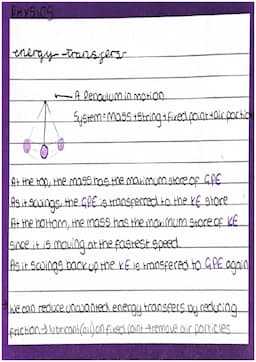 PHYSICS
energy transfers
A Pendulum in motion
System = mass + string + fixed point + air partic
At the top, the mass has the maximum store of GPE
As it swings, the GPE is transferred to the KE store
At the bottom, the mass has the maximum store of KE
since it is moving at the fastest speed
As it swings back up the KE is transferred to GPE again
We can reduce unwanted energy transfers by reducing
friction → lubricant (oil) on fixed point → remove air particles